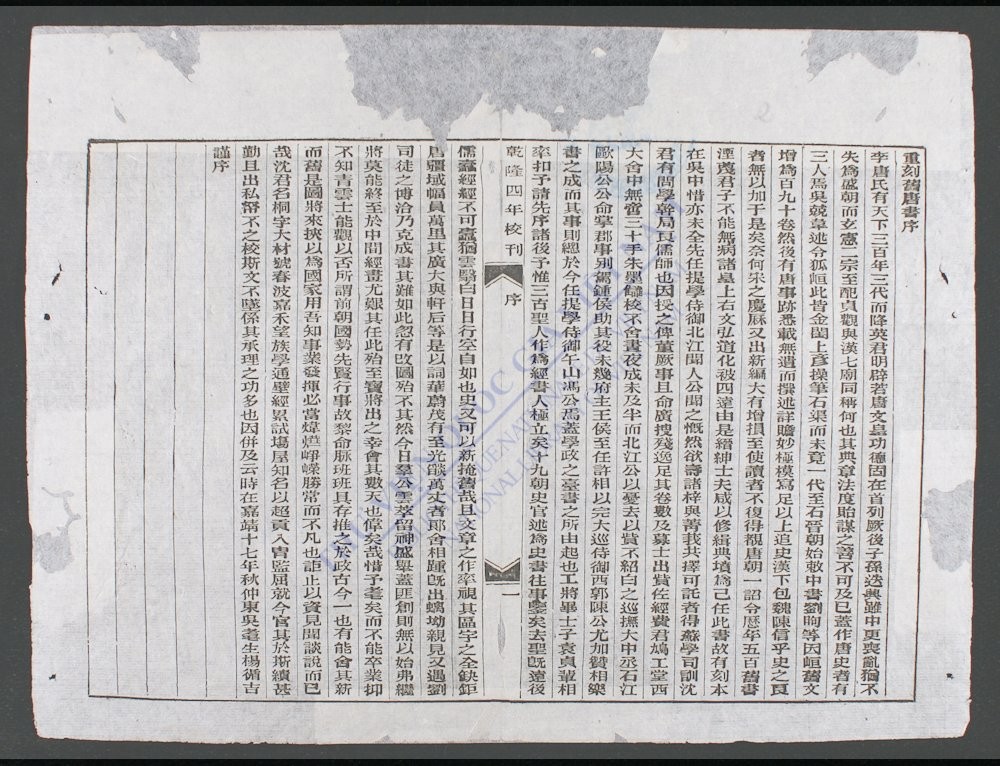 重刻舊唐書序
李唐氏有天下三百年三代而降英君明辟若唐文皇功德固在首列厥後子孫迭興雖中更喪亂猶不
失為盛朝而玄憲二宗至配貞觀與漢七廟同稱何也其典章法度貽謀之善不可及已蓋作唐史者有
三人焉吳兢韋述令狐峘此皆金閨上彥操筆石渠而未竟一代至石晉朝始敕中書劉昫等因峘舊文
增為百九十卷然後有唐事跡悉載無遺而撰述詳贍妙極模寫足以上追史漢下包魏陳信乎史之良
者無以加于是矣奈何宋之慶曆又出新編大有增損至使讀者不復得覩唐朝一詔令歷年五百舊書
湮蔑君子不能無病諸皇上右文弘道化被四遠由是縉紳士夫咸以修緝典墳為己任此書故有刻本
在吳中惜亦未全先任提學侍御北江聞人公聞之慨然欲壽諸梓與菁莪共擇可託者得蘇學司訓沈
君有開學幹局良儒師也因授之俾董厥事且命廣搜殘逸足其卷數及募士出貲佐經費君鳩工堂西
大舍中無啻三十手朱墨讎校不舍晝夜成未及半而北江公以憂去以貲不紹白之巡撫大中丞石江
歐陽公公命掌郡事別駕鍾侯助其役未幾府主王侯至任許相以完大巡侍御西郭陳公尤加贊相樂
書之成而其事則總於今任提學侍御午山馮公焉蓋學政之臺書之所由起也工將畢士子袁貞輩相
率扣予請先序諸後予惟三古聖人作為經書人極立矣十九朝史官述為史書往事鑒矣去聖既遠後
乾隆四年校刊
序
一
儒蠹經經不可蠹猶雲翳白日日行空自如也史又可以新掩舊哉且文章之作率視其區宇之全缺鉅
唐疆域幅員萬里其廣大與軒后等是以詞華蔚茂有至光燄萬丈者耶舍相踵既出螭坳親見又遇劉
司徒之博洽乃克成書其難如此忽有改圖殆不其然今日羣公雲萃留神盛舉蓋匪創則無以始弗繼
將莫能終至於中間經畫尤艱其任此殆至寶將出之幸會其數天也偉矣哉惜予耄矣而不能卒業抑
不知青雲士能觀以否所謂前朝國勢先賢行事故黎命脈班班具存推之於政古今一也有能會其新
而舊是圖將來挾以為國家用吾知事業發揮必當煒燁崢嶸勝常而不凡也詎止以資見聞談說而已
哉沈君名桐字大材號春波嘉禾望族學通璧經累試場屋知名以超貢入冑監屈就今官其於斯績甚
勤且出私帑不之校斯文不墜係其承理之功多也因併及云時在嘉靖十七年秋仲東吳耄生楊循吉
謹序
THƯ VIỆN QUỐC GIA VIỆT NAM
NATIONAL LIBRARY